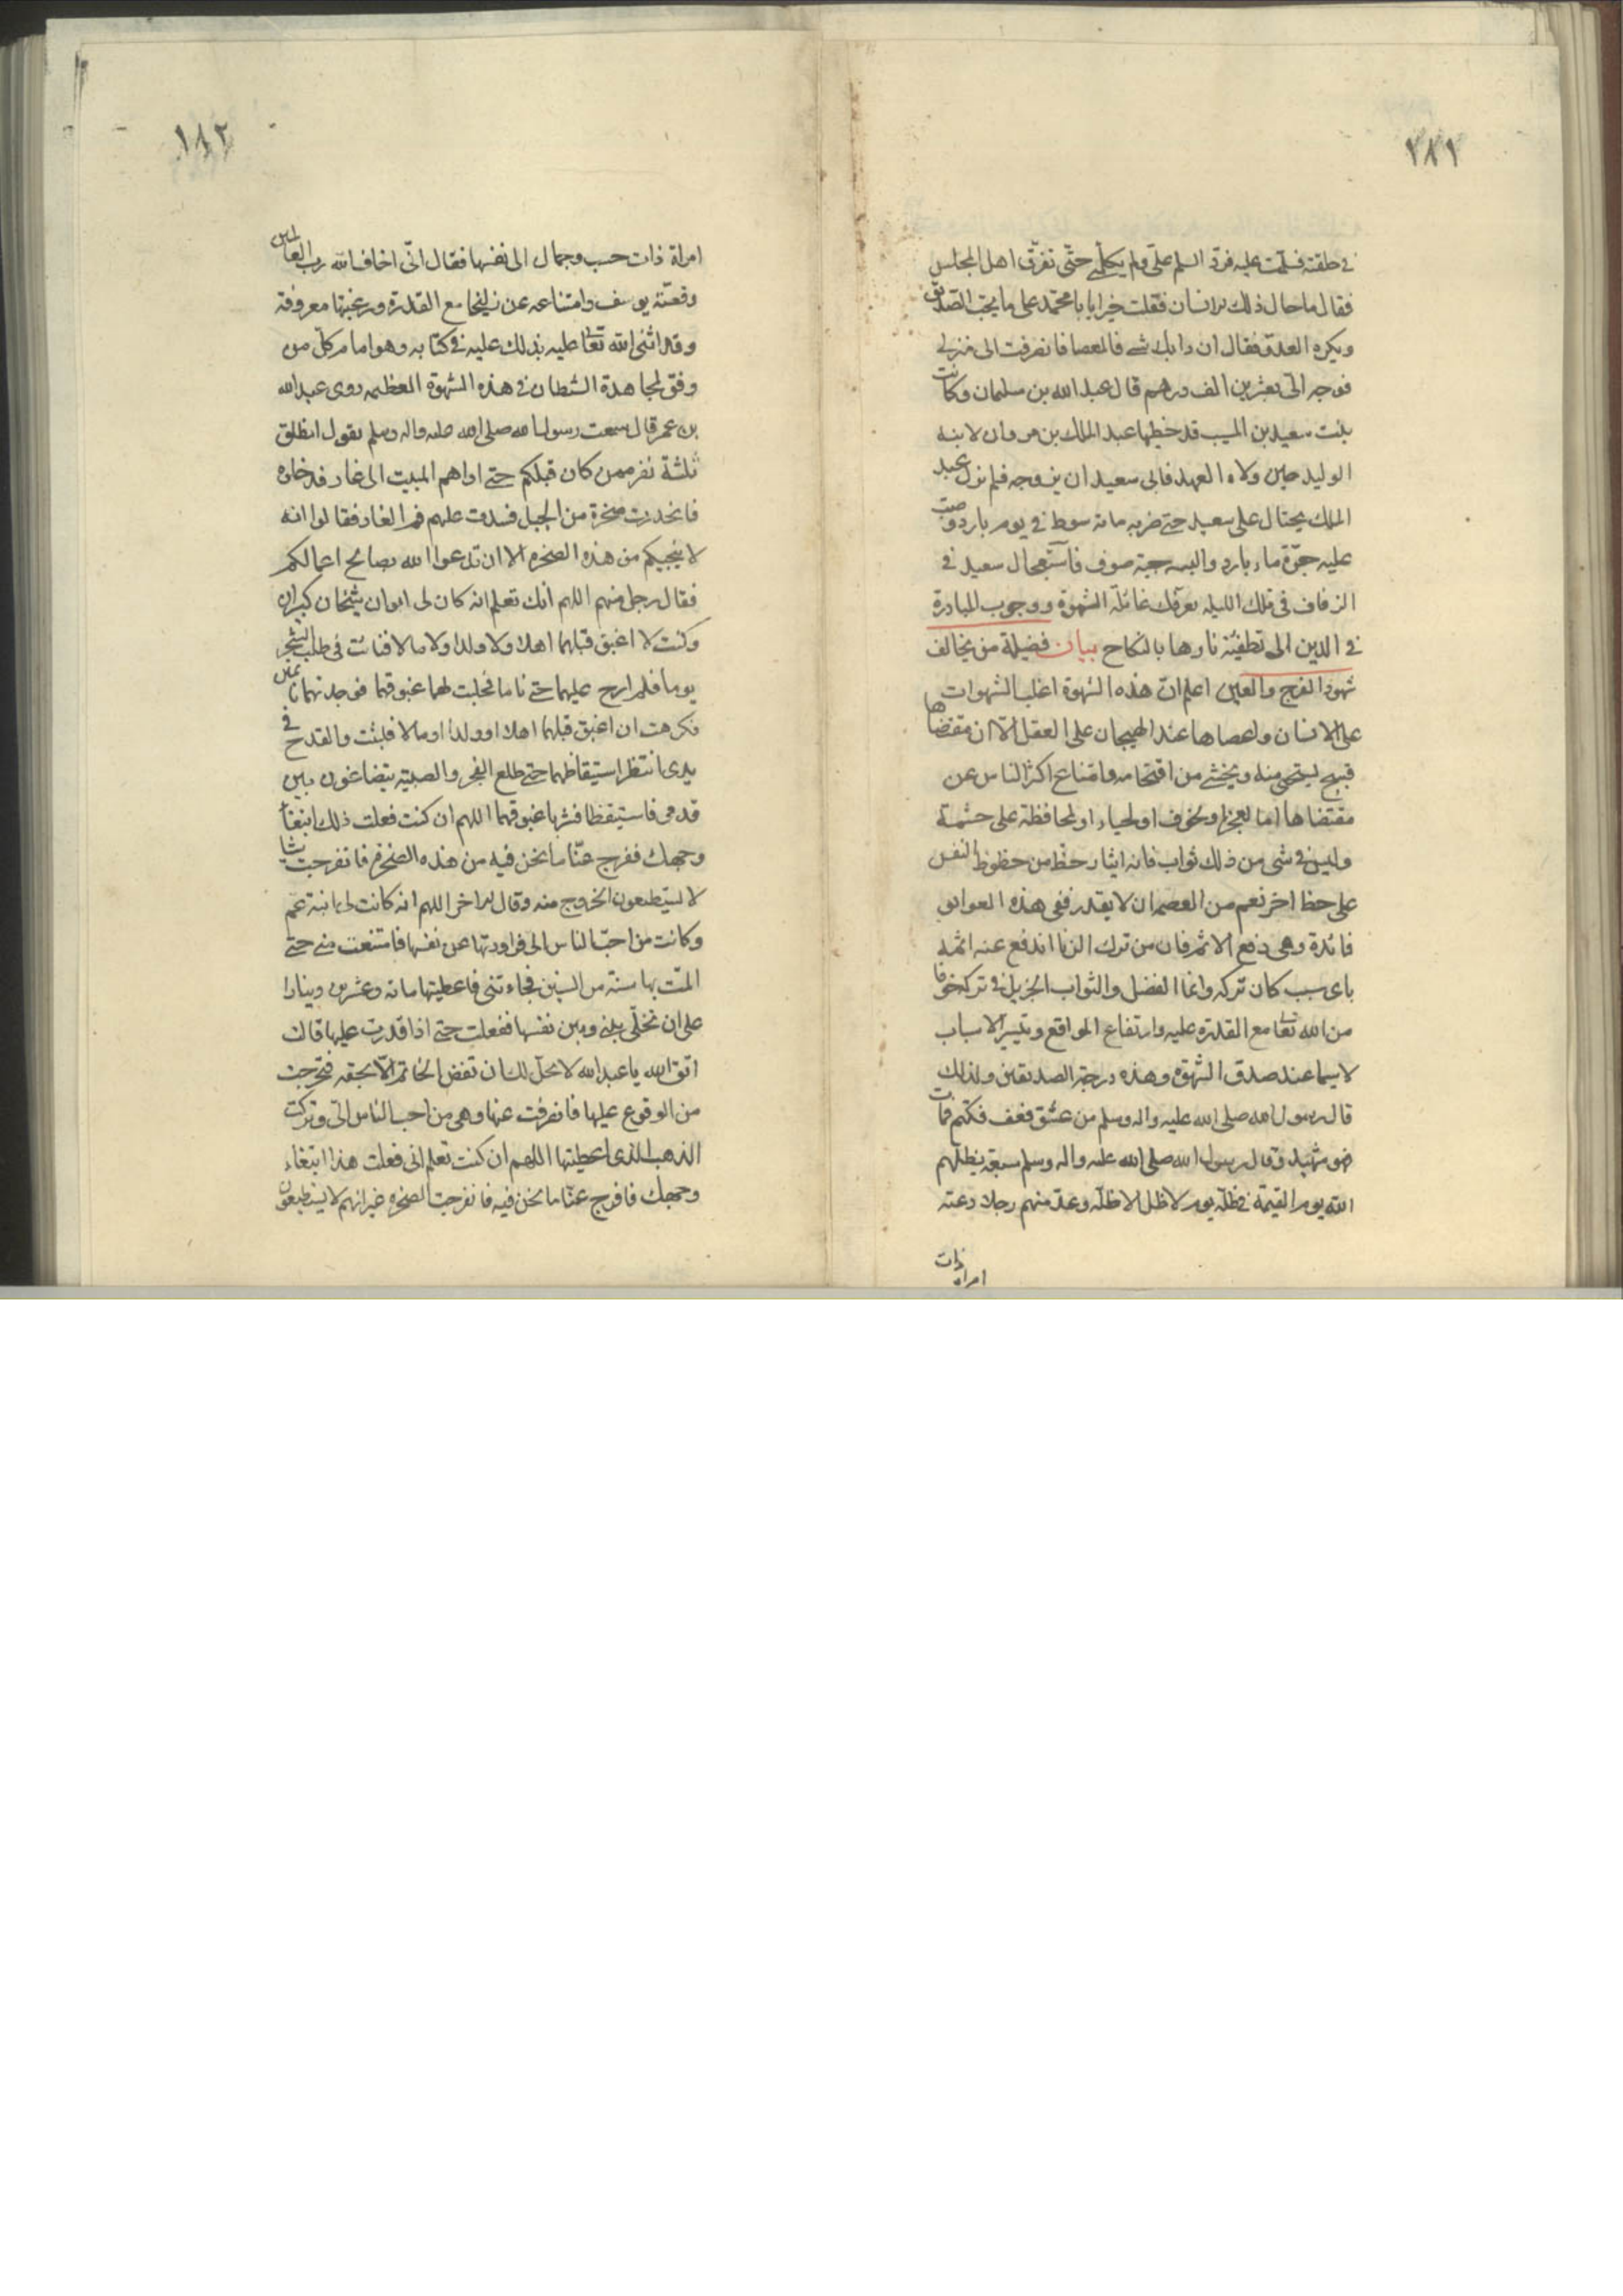 ٢٨١
في حلقته فسلمت عليه فردّ السلم علىّ ولم يكلّمني حتّى تفرّق اهل المجلس
فقال ما حال ذلك الانسان فقلت خيرا يا با محمّد على ما يحبّ الصديق
ويكره العدوّ فقال ان رابك شئ فالعصا فانصرفت الى منزلي
فوجه الىّ بعشرين الف درهم قال عبد الله بن سليمان وكانت
بنت سعيد بن المسيب قد خطبها عبد الملك بن مروان لابنه
الوليد حين ولاه العهد فابى سعيد ان يزوجه فلم يزل عبد
الملك يحتال على سعيد حتى ضربه مائة سوط في يوم بارد وصبّ
عليه جرّة ماء بارد والبسه جبة صوف فاستعجال سعيد في
الزفاف في تلك الليله يعرّفك غائلة الشهوة ووجوب المبادرة
في الدين الى تطفيّة نارها بالنكاح بيان فضيلة من يخالف
شهوة الفرج والعين اعلم انّ هذه الشهوة اغلب الشهوات
على الانسان واعصاها عند الهيجان على العقل الّا ان مقتضاها
قبيح يستحيى منه ويخشى من اقتحامه وامتناع اكثر الناس عن
مقتضاها اما لعجز او لخوف او لحياء او لمحافظة على حشمة
وليس في شئ من ذلك ثواب فانه ايثار حظّ من حظوظ النفس
على حظ اخر نعم من العصمة ان لا يقدر ففي هذه العوايق
فائدة وهى دفع الاثم فان من ترك الزنا اندفع عنه اثمه
باى سبب كان تركه وانما الفضل والثواب الجزيل في تركه خوفا
من الله تعا مع القدرة عليه وارتفاع الموانع وتيسّر الاسباب
لا سيما عند صدق الشهوة وهذه درجة الصديقين ولذلك
قال رسول الله صلى الله عليه واله وسلم من عشق فعف فكتم فمات
فهو شهيد وقال رسول الله صلى الله عليه واله وسلم سبعة يظلّهم
الله يوم القيمة في ظلّه يوم لا ظل الا ظلّه وعدّ منهم رجلا دعته
امراة ذات
١٨٢
امراة ذات حسب وجمال الى نفسها فقال انّى اخاف الله رب العالمين
وقصّة يوسف وامتناعه عن زليخا مع القدرة ورغبتها معروفة
وقد اثنى الله تعا عليه بذلك عليه في كتابه وهو امام كلّ من
وفق لمجاهدة الشيطان في هذه الشهوة العظيمه روى عبد الله
بن عمر قال سمعت رسول الله صلى الله عليه واله وسلم يقول انطلق
ثلثة نفر ممن كان قبلكم حتى اواهم المبيت الى غار فدخلوه
فانحدرت صخرة من الجبل فسدت عليهم فم الغار فقالوا انه
لا ينجيكم من هذه الصخره الا ان تدعوا الله بصالح اعمالكم
فقال رجل منهم اللهم انك تعلم انه كان لى ابوان شيخان كبيران
وكنت لا اغبق قبلهما اهلا ولا ولدا ولا مالا فنات في طلب الشجر
يوما فلم ارح عليهما حتى ناما فحلبت لهما غبوقهما فوجدتهما نائمين
فكرهت ان اغبق قبلهما اهلا او ولدا او مالا فلبثت والقدح في
يدى انتظر استيقاظهما حتى طلع الفجر والصبية يتضاغون بين
قدمى فاستيقظا فشربا غبوقهما اللهم ان كنت فعلت ذلك ابتغاء
وجهك ففرج عنّا ما نحن فيه من هذه الصخرة فانفرجت شيئا
لا يستطيعون الخروج منه وقال الاخر اللهم انه كانت لى ابنة عمّ
وكانت من احبّ الناس الى فراودتها عن نفسها فامتنعت منى حتى
المّت بها سنة من السنين فجاءتنى فاعطيتها مائة وعشرين دينارا
على ان تخلّى بينى وبين نفسها ففعلت حتى اذا قدرت عليها قالت
اتق الله يا عبد الله لا يحلّ لك ان تفض الخاتم الّا بحقه فتحرجت
من الوقوع عليها فانصرفت عنها وهى من احب الناس الىّ وتركت
الذهب الذى اعطيتها اللهم ان كنت تعلم انى فعلت هذا ابتغاء
وجهك فافرج عنّا ما نحن فيه فانفرجت الصخرة غير انهم لا يستطيعون